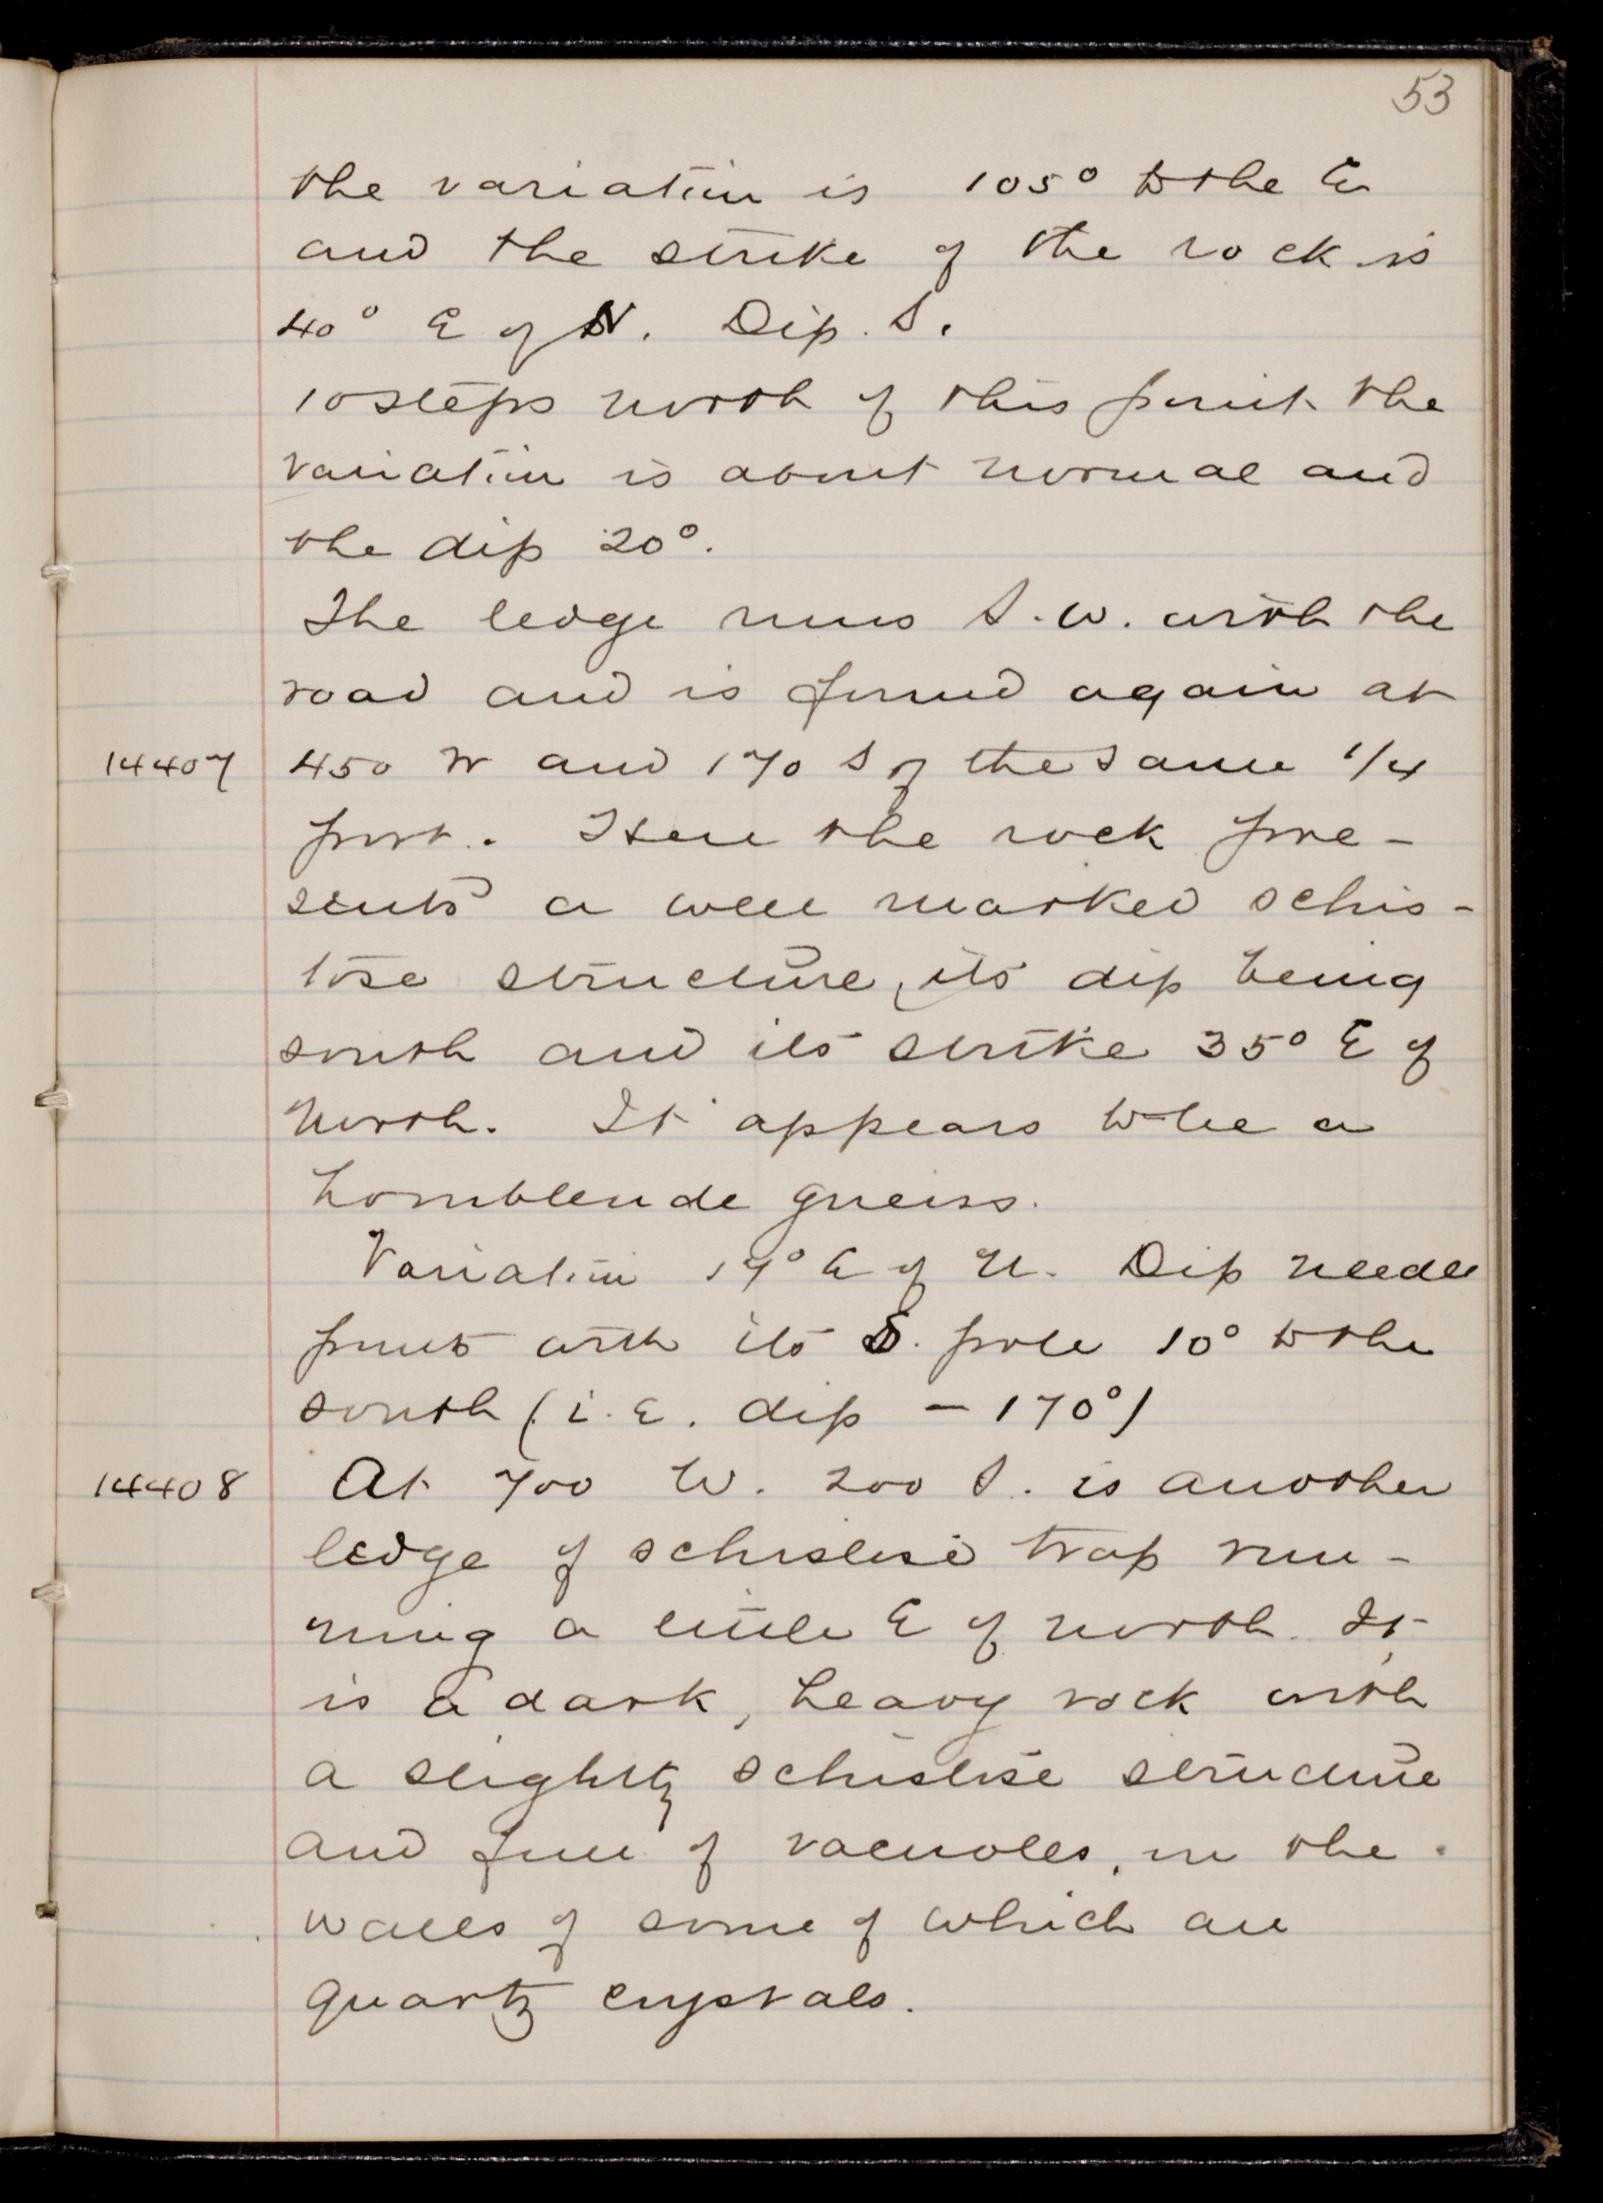 53
the variation is 105° to the E
and the strike of the rock is
40° E of N. Dip S.
10 steps north of this point the
variation is about normal and
the dip 20°.
The ledge runs S.W. with the
road and is found again at
14407 450 W and 170 S of the same 1/4
post. Here the rock pre-
sents a well marked schis-
tose structure, its dip being
south and its strike 35° E of
North. It appears to be a
hornblende gneiss.
Variation 17° E of N. Dip needle
points with its S. pole 10° to the
south (i.e. dip - 170°)
14408 At 700 W. 200 S. is another
ledge of schistose trap run-
ning a little E of north. It
is a dark, heavy rock with
a slightly schistose structure
and full of vacuoles, in the
walls of some of which are
quartz crystals.